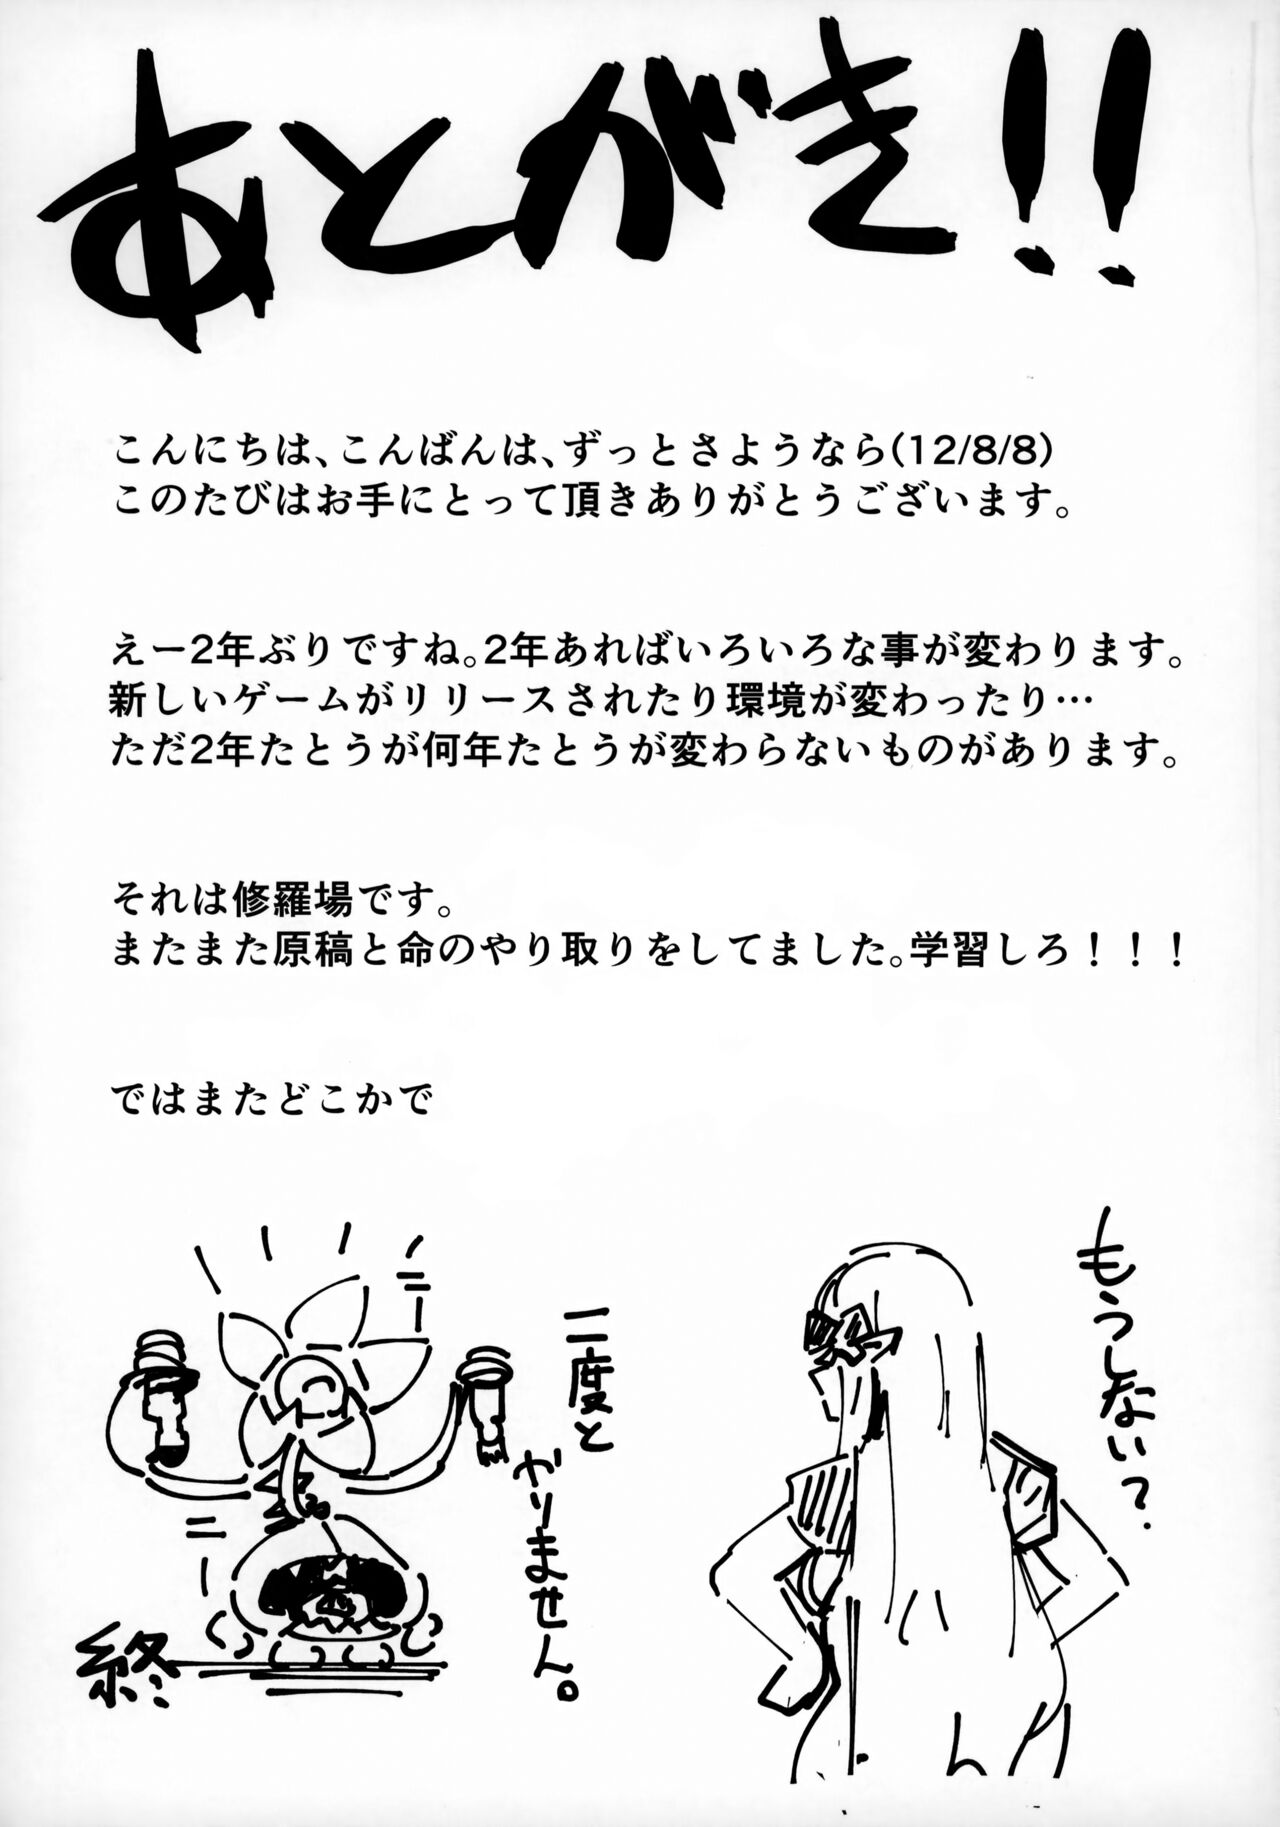 あとがき!!
こんにちは、こんばんは、ずっとさようなら(12/8/8)
このたびはお手にとって頂きありがとうございます。
えー2年ぶりですね。2年あればいろいろな事が変わります。
新しいゲームがリリースされたり環境が変わったり…
ただ2年たとうが何年たとうが変わらないものがあります。
それは修羅場です。
またまた原稿と命のやり取りをしてました。学習しろ！！！
ではまたどこかで
もうしない?
二度と
かりません。
終